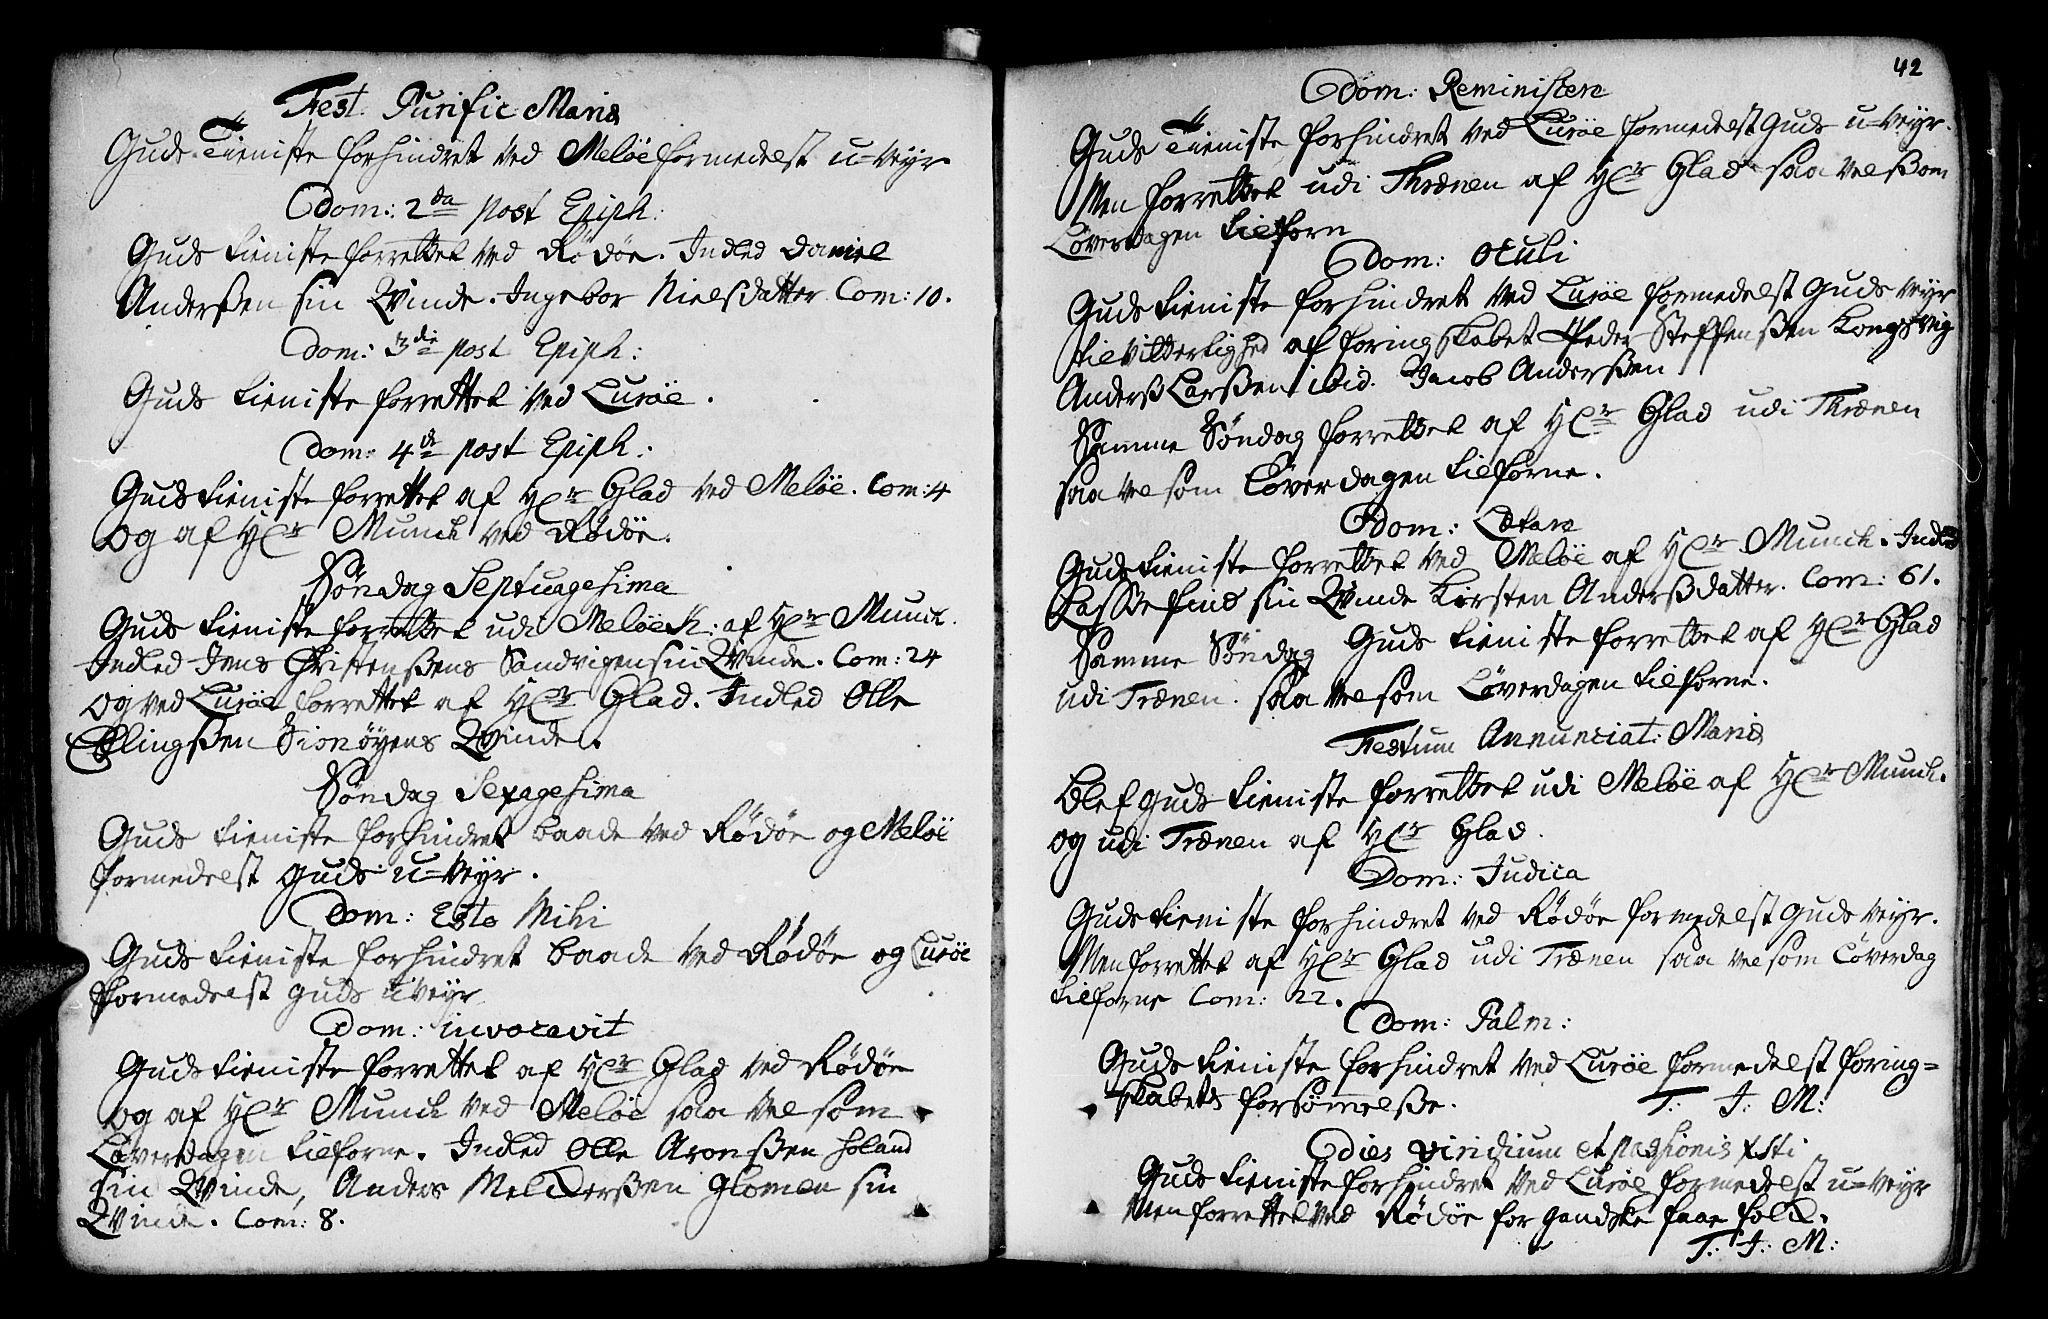 Fest: Purific: Mariæ
Guds Tieniste forhindret ved Meløe formedelst u=veyr
Dom: 2da post Epiph:
Guds tieniste forrettet ved Rödöe. Indled Daniel
Anderßen sin Qvinde. Ingebor Nielsdatter. Com: 10.
Dom: 3die post Epiph:
Guds tieniste forrettet ved Luröe.
Dom: 4de post Epiph:
Guds tieniste forrettet af Hr Glad ved Meløe. Com: 4
og af Hr Munch ved Rödöe.
Söndag Septuagesima
Guds tieniste forrettet udi Meløe K: af Hr Munch.
Indled Jens Christenßens Sandvigen sin Qvinde. Com: 24
og ved Luröe forrettet af Hr Glad. Indled Olle
Ellingßen Qvinde.
Söndag Sexagesima
Guds tieniste forhindret baade ved Rödöe og Meløe
formedelst guds u=veyr.
Dom: Esto Mihi
Guds tieniste forhindret baade ved Rödöe og Luröe
formedelst guds uveyr
Dom: invocavit
Guds tieniste forrettet af Hr Glad ved Rödöe
og af Hr Munch ved Meløe saa vel som
Löverdagen tilforne. Indled Olle Aronßen holand
sin Qvinde, Anders Melckerßen glomen sin
Qvinde. Com: 8.
42
Dom: Reminiscere
Guds Tieniste forhindret ved Luröe formedelst Guds u=veyr.
Men forrettet udi Thrænen af Hr Glad saa vel ßom
Löverdagen tilforn
Dom: Oculi
Guds tieniste forhindret ved Luröe formedelst Guds veyr
tilvitterlighed af foringskabet Peder Steffenßen Kongsvig
Anderß Larßen ibid. Jacob Anderßen
Samme Söndag forrettet af Hr Glad udi Thrænen
saa vel som Löverdagen tilforne.
Dom: Lætare
Guds tieniste forrettet ved Meløe af Hr Munch. Indled
Lasse find sin Qvinde Kirsten Anderßdatter. Com: 61.
Samme Söndag Guds tieniste forrettet af Hr Glad
udi Trænen. saa vel som Löverdagen tilforne.
Festum Annunciat: Mariæ
Blef guds tieniste forrettet udi Meløe af Hr Munch.
og udi Trænen af Hr Glad.
Dom: Judica
Guds tieniste forhindret ved Rödöe formedelst Guds veyr.
Men forrettet af Hr Glad udi Trænen saa vel som Löverdag
tilforne Com: 22.
Dom: Palm:
Guds tieniste forhindret ved Luröe formedelst foring=
skabets forsömmelße. T: J: M:
Dies viridium et passionis Xsti
Guds tieniste forhindret ved Luröe formedelst u=veyr
Men forrettet ved Rödöe for gandske faae folck.
T: J: M: